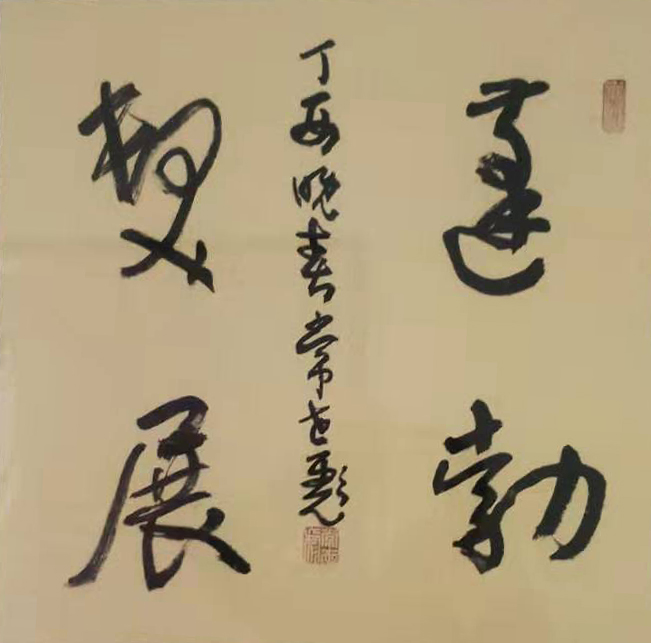 蓬勃
發展
丁酉晚春常